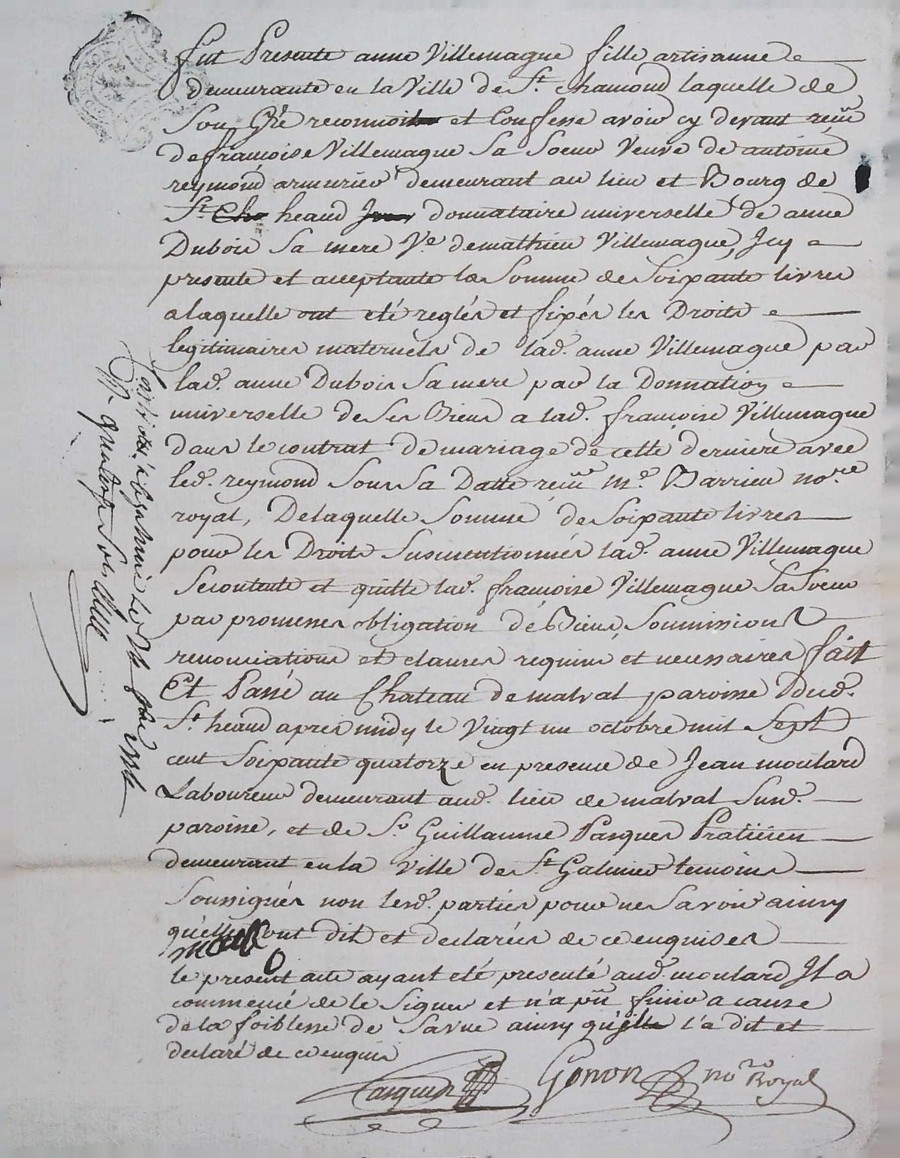 fut Presente anne Villemagne fille artisanne
demeurante en la Ville de St. chamond laquelle de
Son Gré reconnoit et Confesse avoir cy devant reçu
de francoise Villemagne Sa Soeur Veuve de antoine
reymond armurier demeurant au lieu et Bourg de
St. heand donnataire universelle de anne
Dubois Sa mere Ve. de mathieu Villemagne, Icy
presente et acceptante la Somme de Soixante livres
a laquelle ont eté reglés et fixés les Droits
legitimaires maternels de lad. anne Villemagne par
lad. anne Dubois Sa mere par la Donnation
universelle de Ses Biens a lad. francoise Villemagne
dans le contrat de mariage de cette derniere avec
led. reymond Sous Sa Datte reçu me. Barrieu nore.
royal, De laquelle Somme de Soixante livres
pour les Droits Susmentionnés lad. anne Villemagne
Se contente et quitte lad. francoise Villemagne Sa Soeur
par promesses obligation de Biens Soumissions
renonciations et clauses requises et necessaires fait
Et Passé au Chateau de malval paroisse dud.
St. heand apres midy le Vingt un octobre mil Sept
cent Soixante quatorze en presence de Jean moulard
Laboureur demeurant aud. lieu de malval Susd.
paroisse, et de Sr. Guillaume Pasquier Praticien
demeurant en la Ville de St. Galmier temoins
Soussignés non lesd. parties pour ne Savoir ainsy
qu'elles ont dit et declarés de ce enquises
le present acte ayant eté presenté aud. moulard Il a
commencé de le Signer et n'a pû finir a cause
de la foiblesse de Sa vue ainsy qu'il l'a dit et
declaré de ce enquis
Pasquier Gonon nore. Royal
quatorze Sols